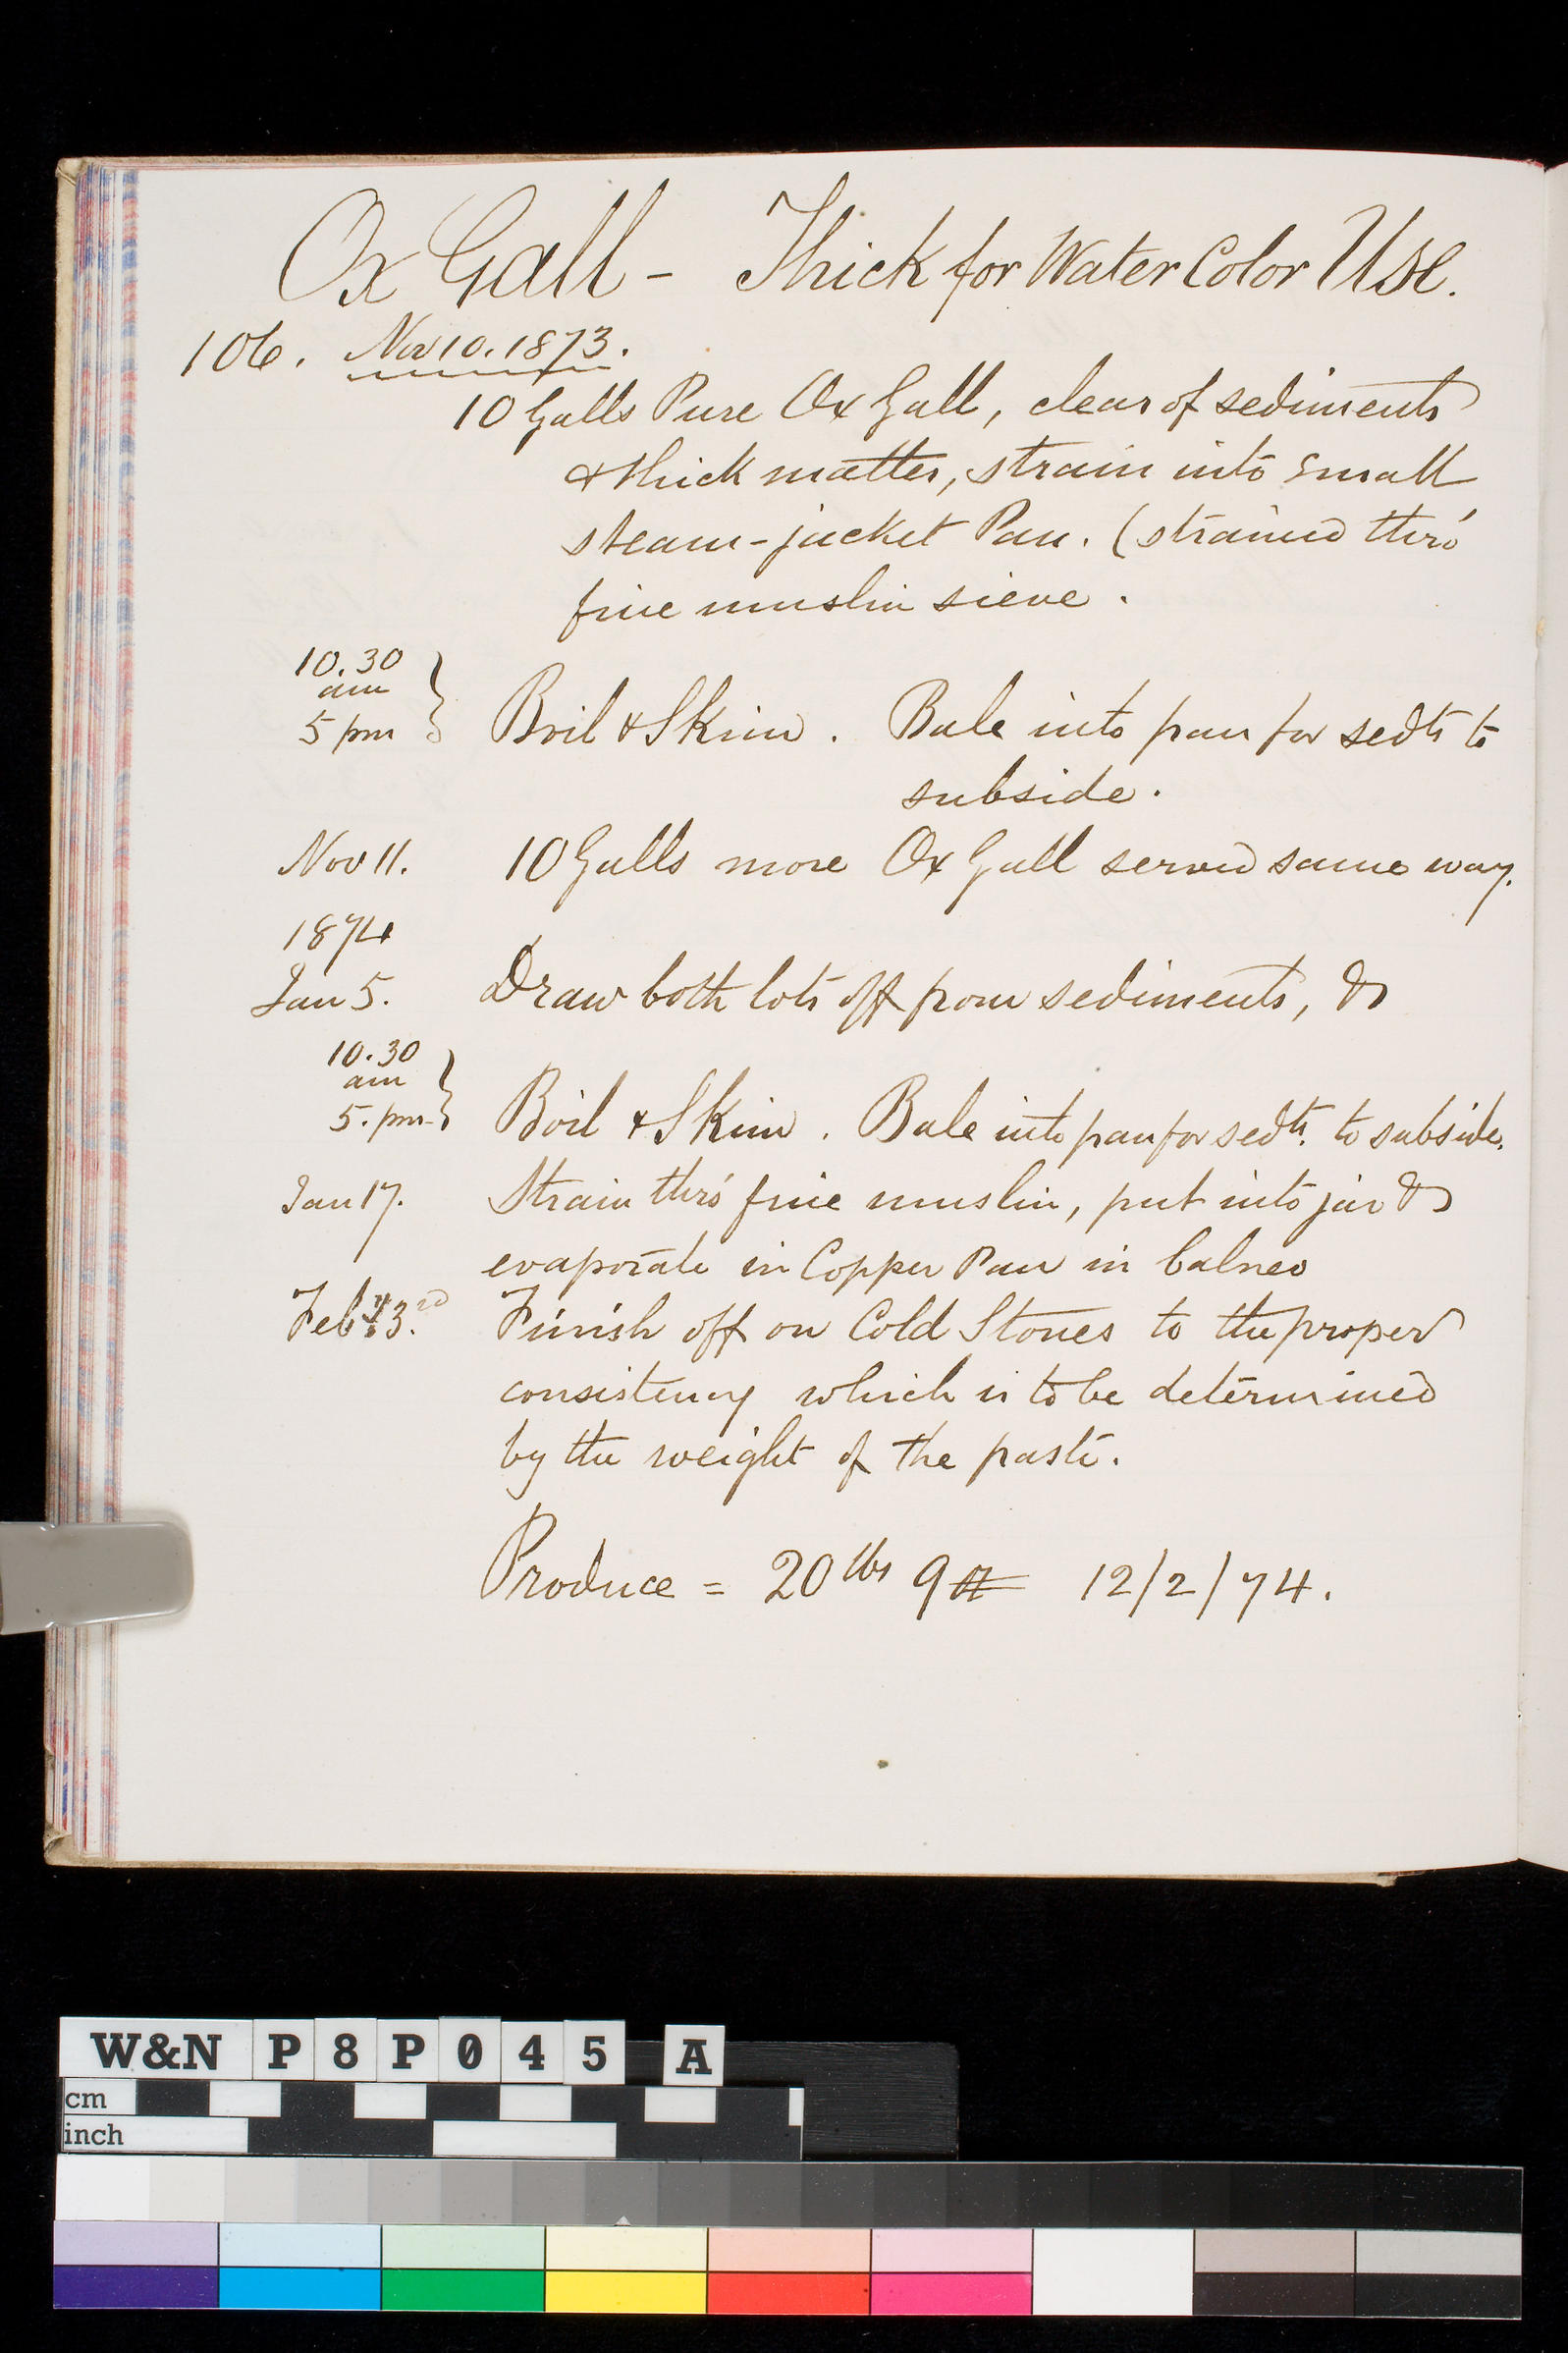 Ox Gall - Thick for Water Color Use.
106. Nov 10. 1873.
10 Galls Pure Ox Gall, clear of sediments
& thick matter, strain into small
steam-jacket Pan. (strained thro'
fine muslin sieve.
10.30
am
5 pm } Boil & Skim. Bale into pan for sedts to
subside.
Nov 11. 10 Galls more Ox Gall served same way.
1874
Jan 5. Draw both lots off from sediments, &
10.30
am
5. pm } Boil & Skim. Bale into pan for sedts. to subside.
Jan 17. Strain thro' fine muslin, put into jar &
evaporate in Copper Pan in balneo
Feb 3rd. Finish off on Cold Stones to the proper
consistency which is to be determined
by the weight of the paste.
Produce = 20 lbs 9 12/2/74.
W&N P8P045 A
cm
inch